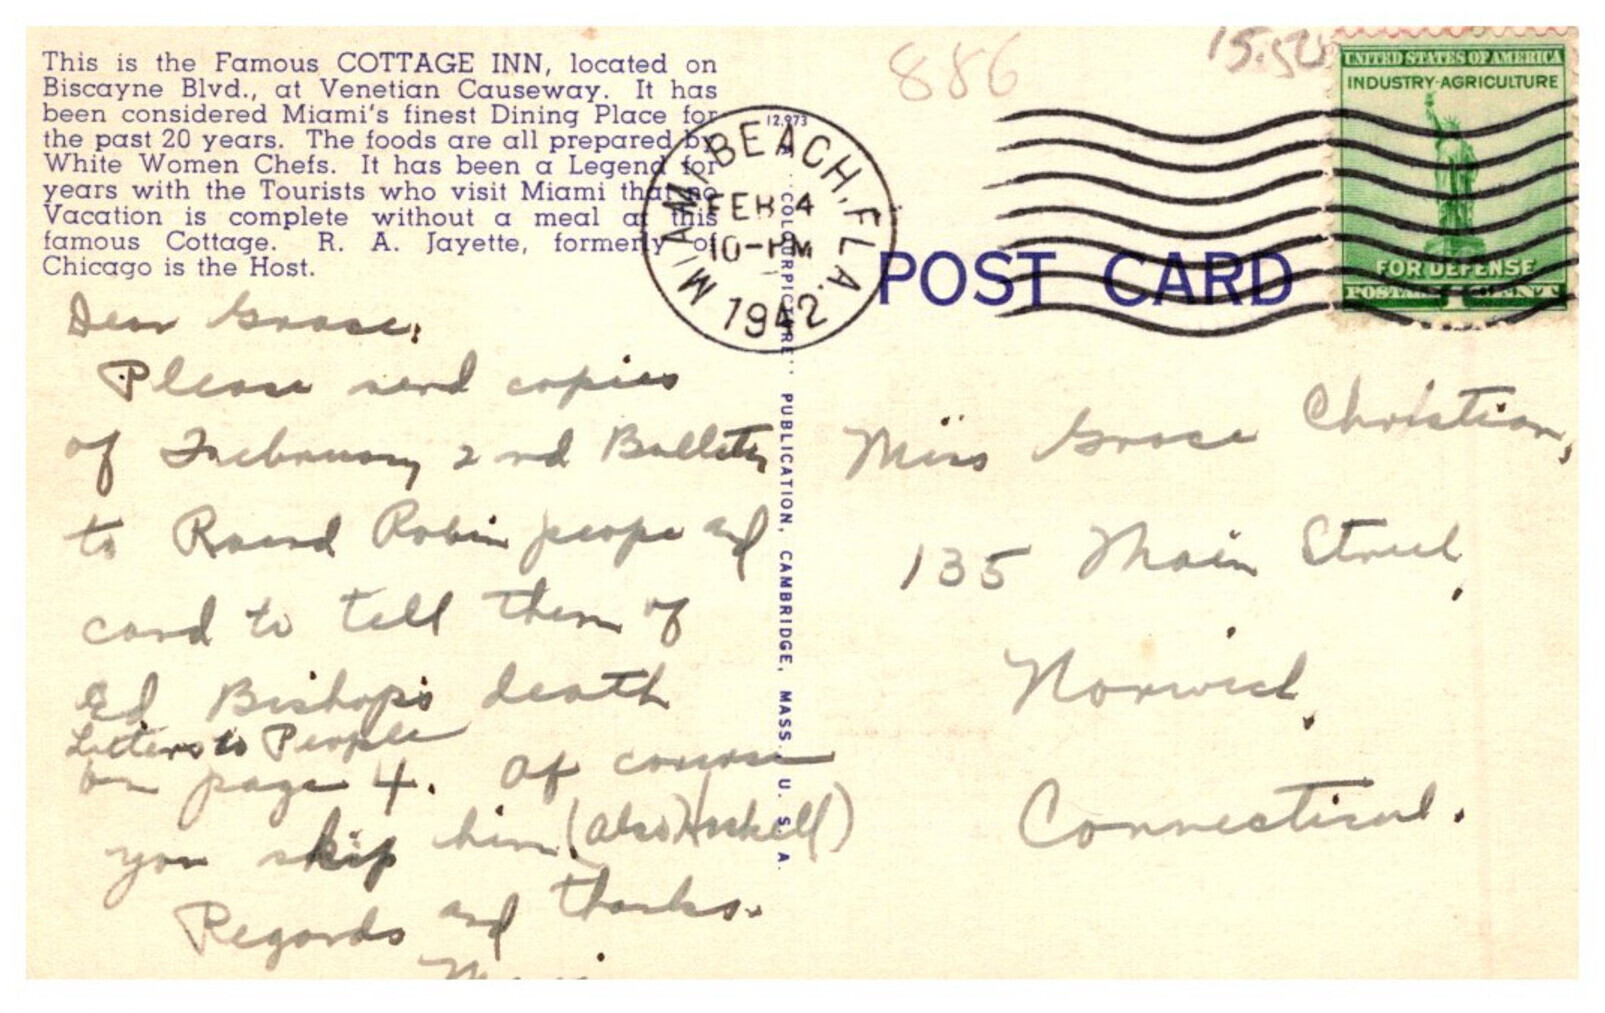 This is the Famous COTTAGE INN, located on
Biscayne Blvd., at Venetian Causeway. It has
been considered Miami's finest Dining Place for
the past 20 years. The foods are all prepared by
White Women Chefs. It has been a Legend for
years with the Tourists who visit Miami that no
Vacation is complete without a meal at this
famous Cottage. R. A. Jayette, formerly of
Chicago is the Host.
Dear Grace:
Please send copies
of February 2nd Bulletin
to Round Robin people and
card to tell them of
Ed Bishop's death
Letters to People
on page 4. Of course
you skip him (also Haskell)
Regards and thanks.
886
15.50
12,973
COLOURPICTURE PUBLICATION, CAMBRIDGE, MASS. U. S. A.
MIAMI BEACH, FLA.
FEB 4
10-PM
1942
POST CARD
UNITED STATES OF AMERICA
INDUSTRY-AGRICULTURE
FOR DEFENSE
POSTAGE 1 CENT
Miss Grace Christian,
135 Main Street,
Norwich,
Connecticut.